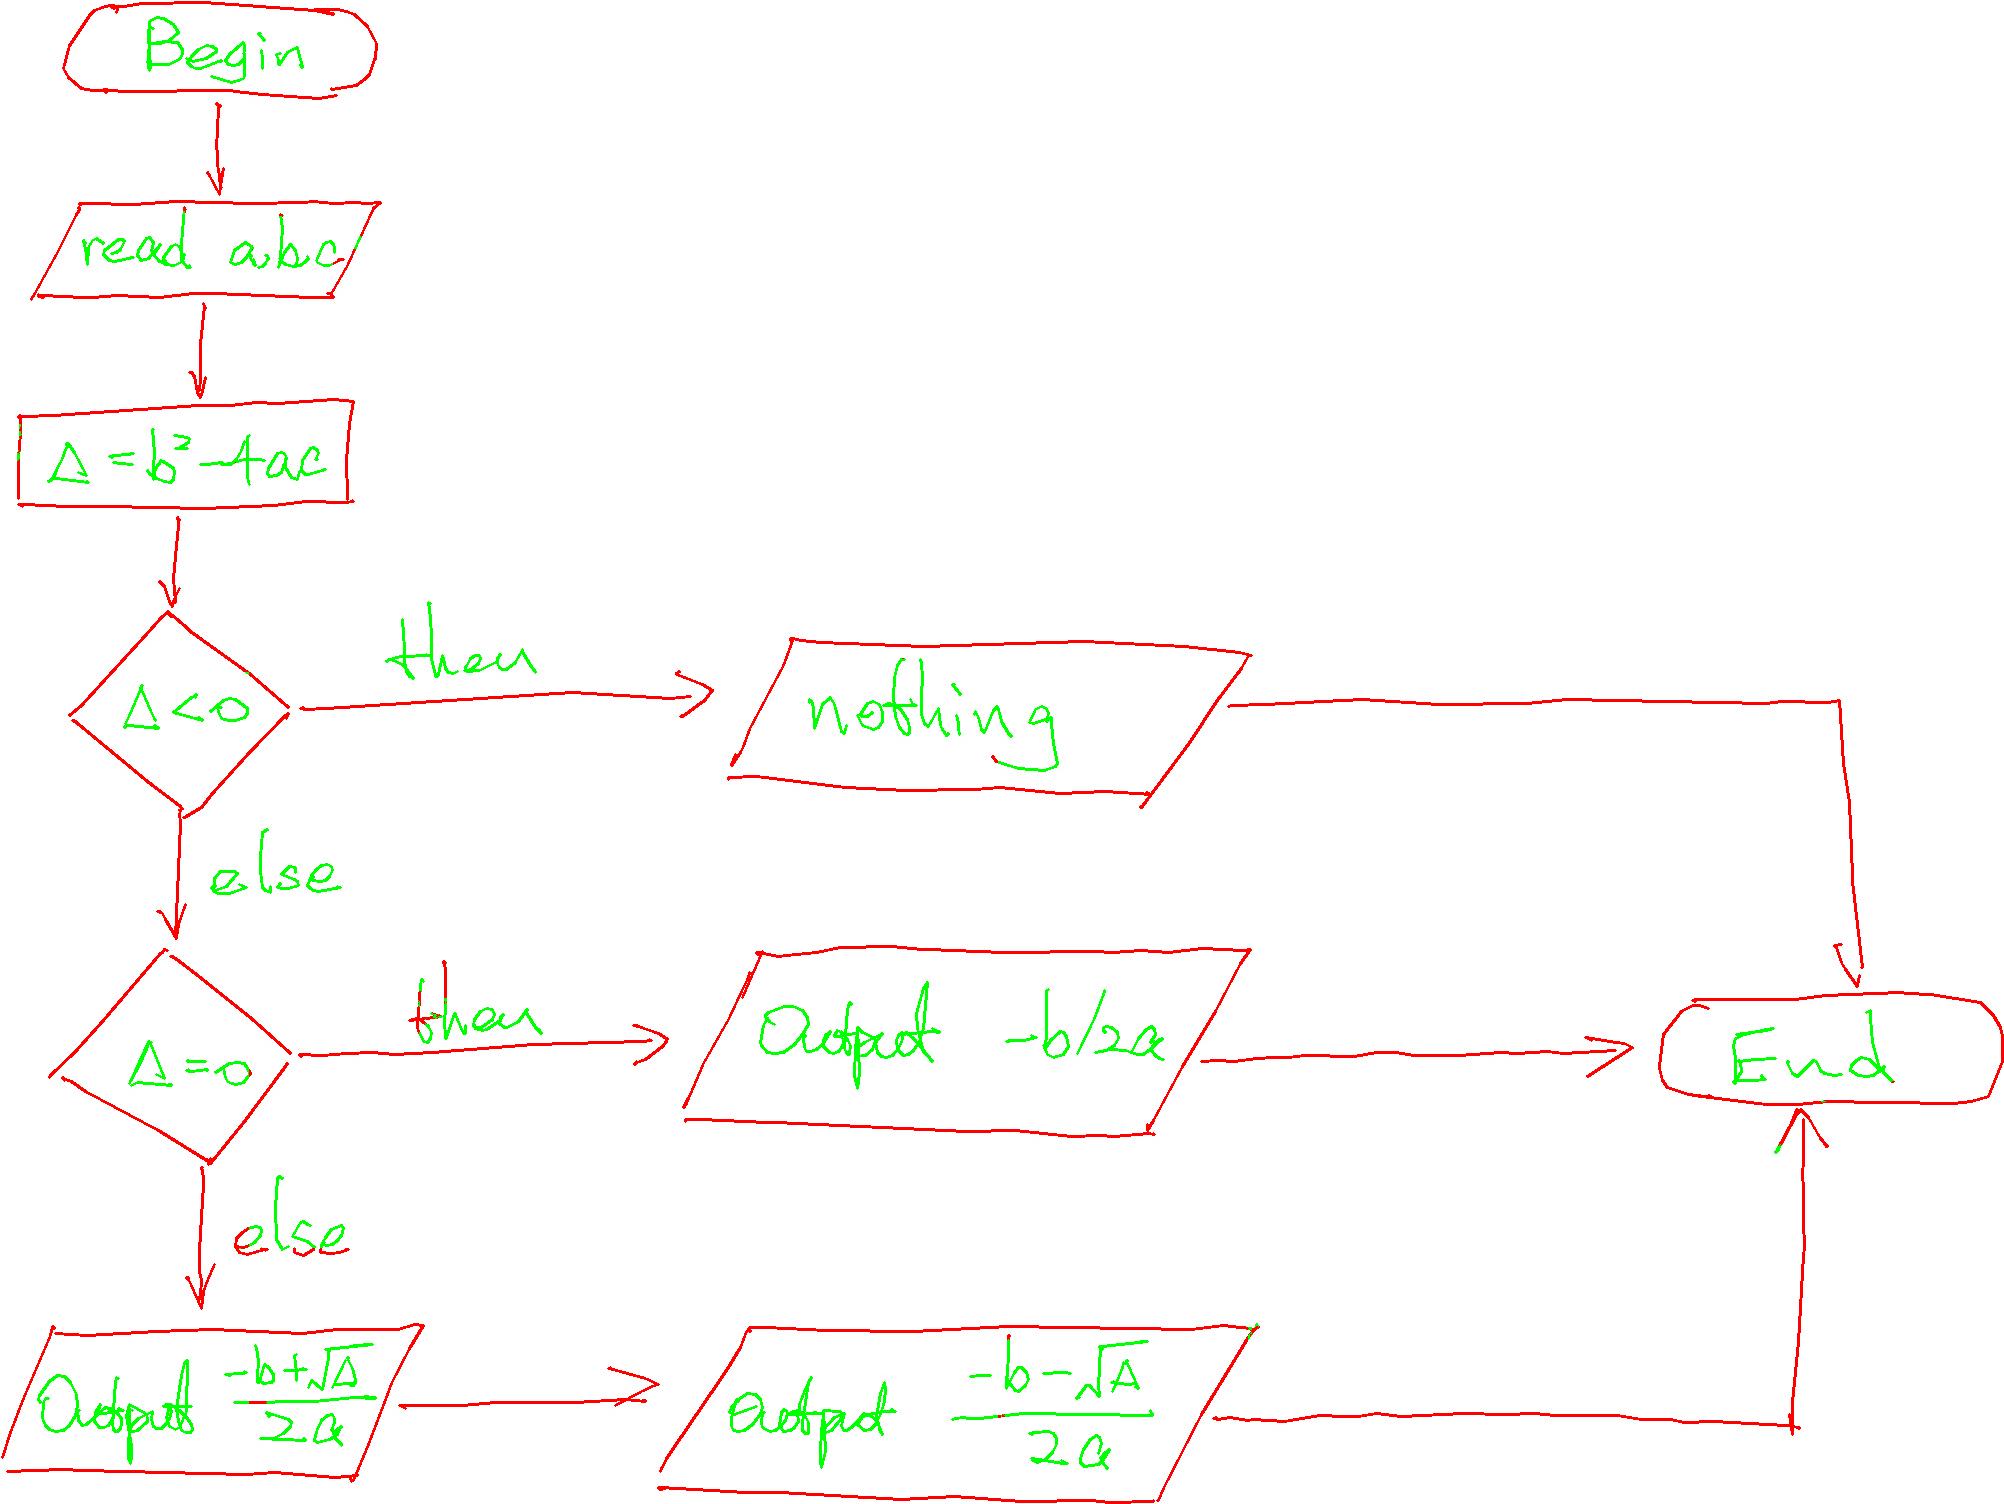 Begin
read a,b,c
Δ=b²-4ac
Δ<0
then
nothing
else
Δ=0
then
Output -b/2a
End
else
Output (-b+√Δ)/2a
Output (-b-√Δ)/2a